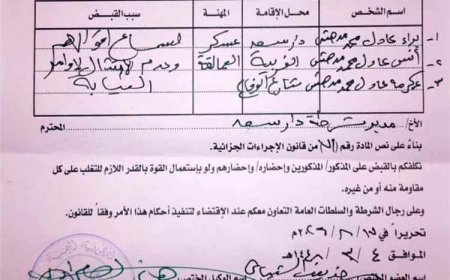 اسم الشخص محل الإقامة المهنة سبب القبض
١- براء عادل محمد مدحش دار سعد عسكر لسماع أقوالهم
٢- أنس عادل محمد مدحش الغربية العمالقة وعدم الامتثال لأوامر
٣- عكرمة عادل محمد مدحش شارع النيابة
الأخ/ مدير شرطة دار سعد المحترم
بناءً على نص المادة رقم من قانون الإجراءات الجزائية.
نكلفكم بالقبض على المذكور/ المذكورين وإحضاره/ وإحضارهم ولو بإستعمال القوة بالقدر اللازم للتغلب على كل
مقاومة منه أو من غيره.
وعلى رجال الشرطة والسلطات العامة التعاون معكم عند الإقتضاء لتنفيذ أحكام هذا الأمر وفقاً للقانون.
تحريراً في / ٨ / ٢٠٢٦م
الموافق ٤ / ٣ / ١٤٤٨هـ
اسم العضو المختص اسم الوكيل المختص